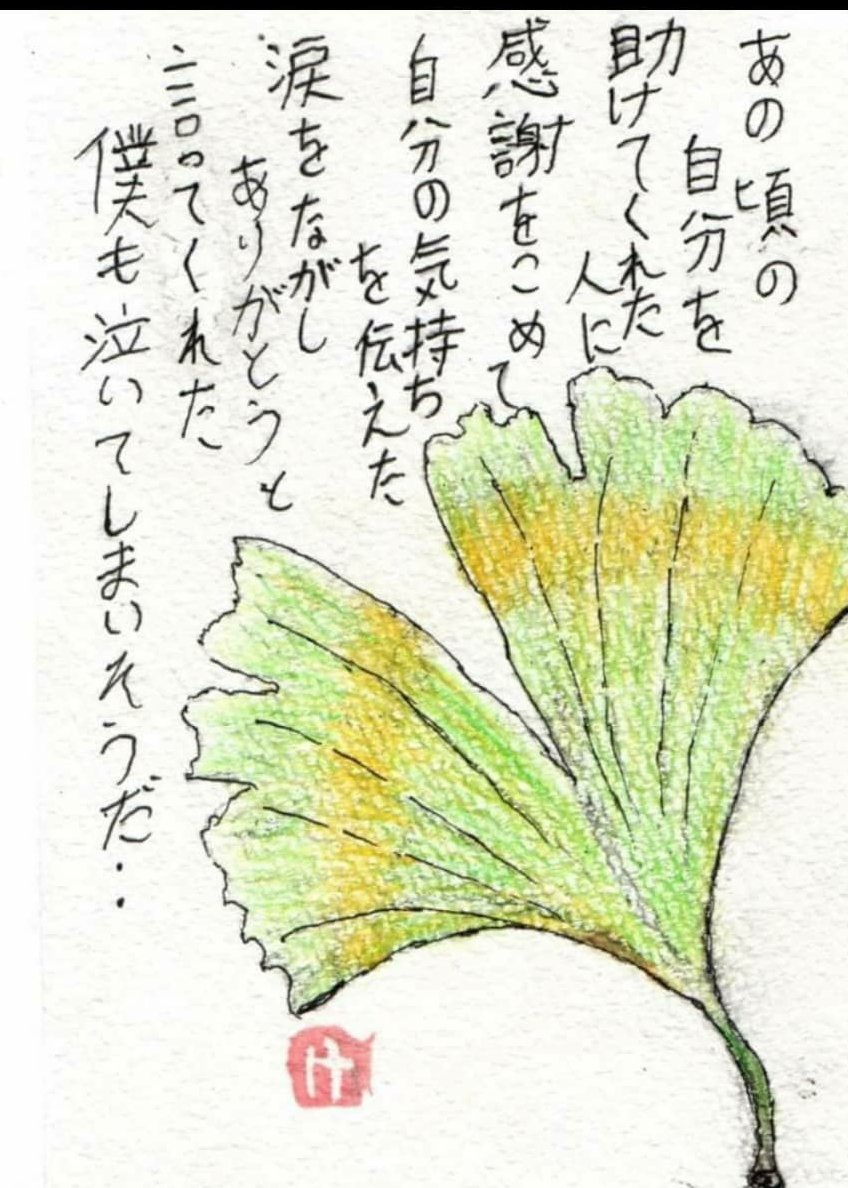 あの頃の
自分を
助けてくれた
人に
感謝をこめて
自分の気持ち
を伝えた
涙をながし
ありがとうと
言ってくれた
僕も泣いてしまいそうだ・・
け